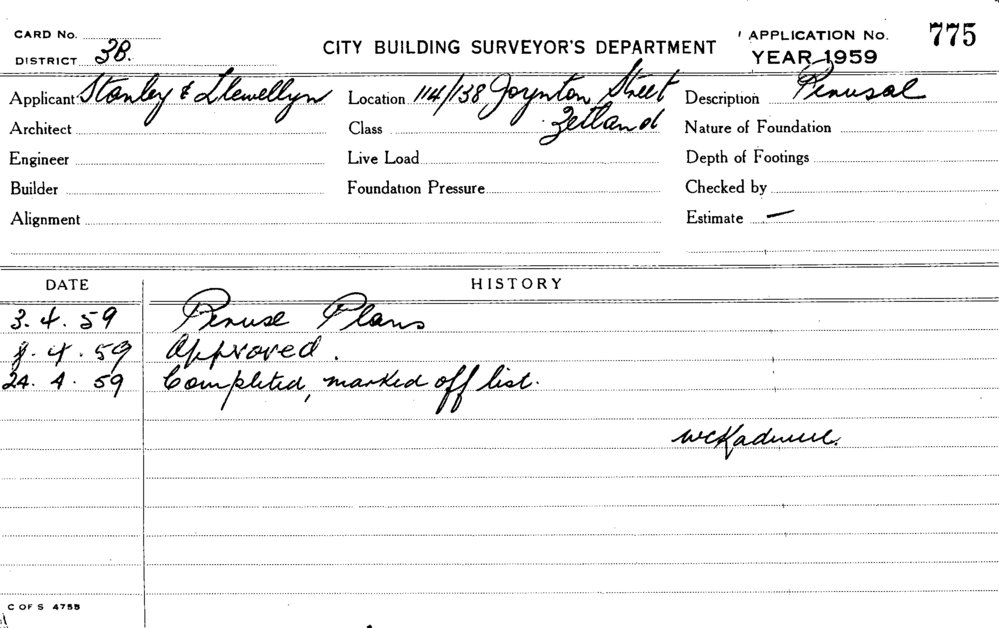 CARD No.
DISTRICT 3B.
CITY BUILDING SURVEYOR'S DEPARTMENT
APPLICATION No. 775
YEAR 1959
Applicant Stanley & Llewellyn Location 114/138 Joynton Street Description Perusal
Architect Class Zetland Nature of Foundation
Engineer Live Load Depth of Footings
Builder Foundation Pressure Checked by
Alignment Estimate —
DATE HISTORY
3. 4. 59 Peruse Plans
8. 4. 59 Approved.
24. 4. 59 Completed, marked off list.
C OF S 4755